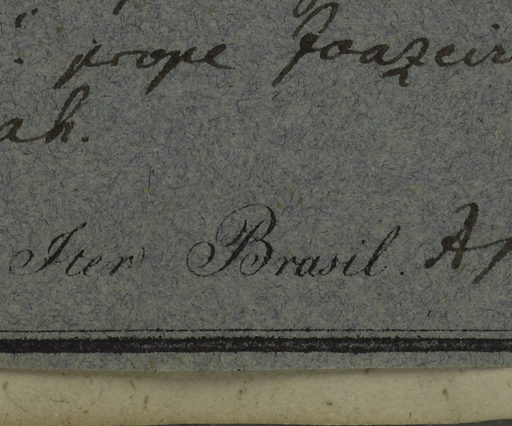 prope Joazeir
ah.
Iter Brasil. Ap